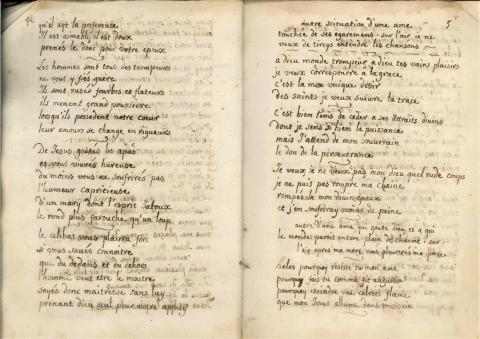 qu'il ayt la preference
Il est aimable il est doux
prenés le donc pour votre epoux
Les hommes sont tous des trompeurs
ne vous y fiés guere
Ils sont rusés fourbes et flateurs
ils menent grand
lorsqu'ils possedent notre cœur
leur amours se change en rigueurs
De Jesus goutés les apas
et vous vivrés hureuse
du moins vous ne soufrirés pas
l'humeur capricieuse
D'un mary dont l'esprit jaloux
le rend plus farouche qu'un loup
le celibat vous plaira fort
si vous savés connoitre
que du dedans et du dehors
l'homme veut etre le maitre
soyés donc maitresse sans luy
prenant dieu seul pour votre apuy
5
autre scituation d'une ame
touchée de ses egaremens sur l'air je ne
veux de tircys entendre les chansons
a dieu monde trompeur a dieu tes vains plaisirs
je veux correspondre a la grace
c'est la mon unique desir
des saints je veux suivre la trace
C'est bien tems de ceder a ses attraits divins
dont je sens si bien la puissance
mais j'attend de mon souverain
le don de la perseverance
Je veux je ne veux pas mon dieu quel rude coups
je ne puis pas rompre ma chaine
rompés la mon divin epoux
et j'en soufriray moins de peine
autre d'une ame qui goute dieu et a qui
le monde paroit encore plein de charme sur
l'air apres ma mort vous pleurerés ma perte
helas pourquoy resiste tu mon ame
pourquoy fais tu comme fit augustin
pourquoy eteindre une celeste flame
que mon Jesus allume dans ton sein